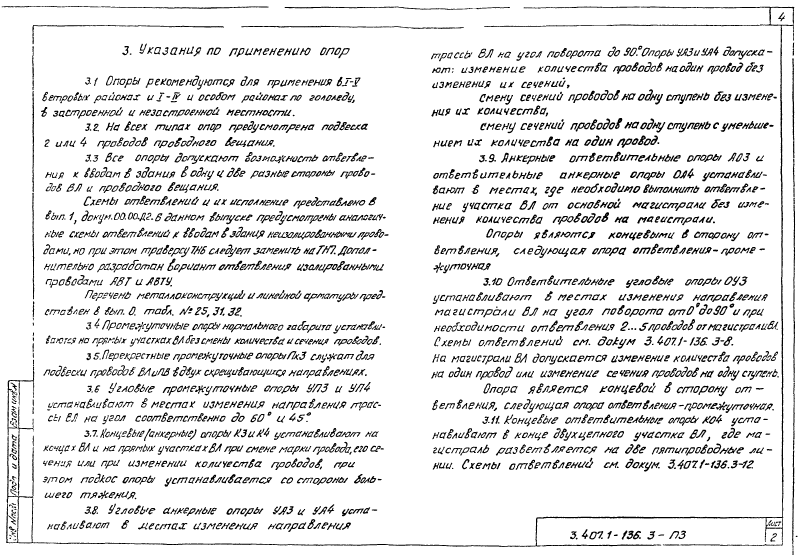 4
3. Указания по применению опор
3.1 Опоры рекомендуются для применения в I-V
ветровых районах и I-IV и особом районах по гололеду,
в застроенной и незастроенной местности.
3.2. На всех типах опор предусмотрена подвеска
2 или 4 проводов проводного вещания.
3.3 Все опоры допускают возможность ответвле-
ния к вводам в здания в одну и две разные стороны прово-
дов ВЛ и проводного вещания.
Схемы ответвлений и их исполнение представлено в
вып. 1, докум. 00.00Д2. В данном выпуске предусмотрены аналогич-
ные схемы ответвлений к вводам в здания неизолированными прово-
дами, но при этом траверсу ТН6 следует заменить на ТН7. Допол-
нительно разработан вариант ответвления изолированными
проводами АВТ и АВТУ.
Перечень металлоконструкций и линейной арматуры пред-
ставлен в вып. 0. табл. №25, 31, 32.
3.4 Промежуточные опоры нормального габарита устанавли-
ваются на прямых участках ВЛ без смены количества и сечения проводов.
3.5. Перекрестные промежуточные опоры Пк3 служат для
подвески проводов ВЛ и ПВ в двух скрещивающихся направлениях.
3.6 Угловые промежуточные опоры УП3 и УП4
устанавливают в местах изменения направления трас-
сы ВЛ на угол соответственно до 60° и 45°.
3.7. Концевые (анкерные) опоры К3 и К4 устанавливают на
концах ВЛ и на прямых участках ВЛ при смене марки провода, его се-
чения или при изменении количества проводов, при
этом подкос опоры устанавливается со стороны боль-
шего тяжения.
3.8. Угловые анкерные опоры УА3 и УА4 уста-
навливают в местах изменения направления
трассы ВЛ на угол поворота до 90°. Опоры УА3 и УА4 допуска-
ют: изменение количества проводов на один провод без
изменения их сечений,
смену сечений проводов на одну ступень без измене-
ния их количества,
смену сечений проводов на одну ступень с уменьше-
нием их количества на один провод.
3.9. Анкерные ответвительные опоры АО3 и
ответвительные анкерные опоры ОА4 устанавли-
вают в местах, где необходимо выполнить ответвле-
ние участка ВЛ от основной магистрали без изме-
нения количества проводов на магистрали.
Опоры являются концевыми в сторону от-
ветвления, следующая опора ответвления-проме-
жуточная
3.10 Ответвительные угловые опоры ОУ3
устанавливают в местах изменения направления
магистрали ВЛ на угол поворота от 0° до 90° и при
необходимости ответвления 2...5 проводов от магистрали ВЛ.
Схемы ответвлений см. докум 3.407.1-136. 3-8.
На магистрали ВЛ допускается изменение количества проводов
на один провод или изменение сечения проводов на одну ступень.
Опора является концевой в сторону от-
ветвления, следующая опора ответвления-промежуточная.
3.11. Концевые ответвительные опоры КО4 уста-
навливают в конце двухцепного участка ВЛ, где ма-
гистраль разветвляется на две пятипроводные ли-
нии. Схемы ответвлений см. докум. 3.407.1-136.3-12.
Инв.№подл. Подп. и дата Взам.инв.№
3.407.1-136. 3-ПЗ
Лист
2